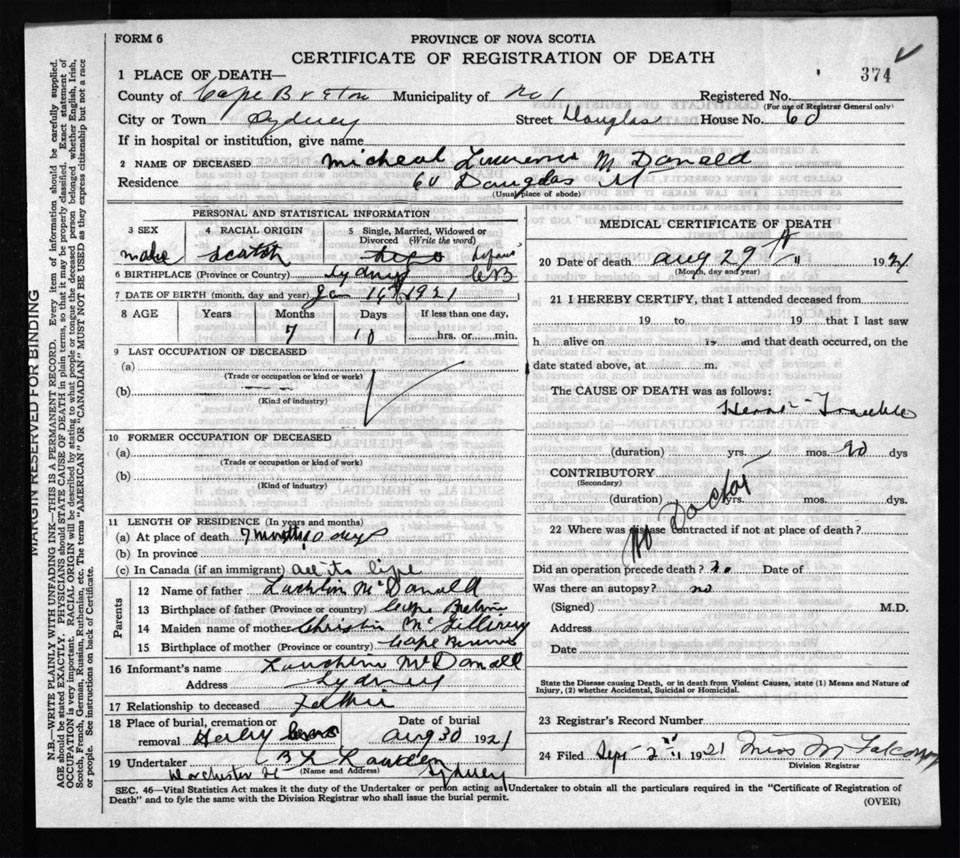 FORM 6
PROVINCE OF NOVA SCOTIA
CERTIFICATE OF REGISTRATION OF DEATH
374
1 PLACE OF DEATH—
County of Cape Breton Municipality of No 1 Registered No.
(For use of Registrar General only)
City or Town Sydney Street Douglas House No. 60
If in hospital or institution, give name
2 NAME OF DECEASED Micheal M Donald
Residence 60 Douglas St
(Usual place of abode)
PERSONAL AND STATISTICAL INFORMATION
3 SEX 4 RACIAL ORIGIN 5 Single, Married, Widowed or Divorced (Write the word)
male Scotch
6 BIRTHPLACE (Province or Country) Sydney CB
7 DATE OF BIRTH (month, day and year) Jan 1921
8 AGE Years Months Days If less than one day,
7 10 hrs. or min.
9 LAST OCCUPATION OF DECEASED
(a)
(Trade or occupation or kind or work)
(b)
(Kind of industry)
10 FORMER OCCUPATION OF DECEASED
(a)
(Trade or occupation or kind of work)
(b)
(Kind of industry)
11 LENGTH OF RESIDENCE (In years and months)
(a) At place of death months 10 days
(b) In province
(c) In Canada (if an immigrant) all its life
Parents
12 Name of father McDonald
13 Birthplace of father (Province or country) Cape Breton
14 Maiden name of mother Christin McGillivry
15 Birthplace of mother (Province or country) Cape Breton
16 Informant's name McDonald
Address Sydney
17 Relationship to deceased Father
18 Place of burial, cremation or removal Date of burial Aug 30 1921
19 Undertaker B L
(Name and Address)
Dorchester St Sydney
MEDICAL CERTIFICATE OF DEATH
20 Date of death Aug 29th 1921
(Month, day and year)
21 I HEREBY CERTIFY, that I attended deceased from
19 to 19 that I last saw
h alive on 19 and that death occurred, on the
date stated above, at m.
The CAUSE OF DEATH was as follows:
Heart Trouble
(duration) yrs. mos. dys
CONTRIBUTORY
(Secondary)
(duration) yrs. mos. dys.
No Doctor
22 Where was disease contracted if not at place of death?
Did an operation precede death? no Date of
Was there an autopsy? no
(Signed) M.D.
Address
Date
State the Disease causing Death, or in death from Violent Causes, state (1) Means and Nature of
Injury, (2) whether Accidental, Suicidal or Homicidal.
23 Registrar's Record Number
24 Filed Sept 2nd 1921 Miss M
Division Registrar
SEC. 46—Vital Statistics Act makes it the duty of the Undertaker or person acting as Undertaker to obtain all the particulars required in the "Certificate of Registration of
Death" and to fyle the same with the Division Registrar who shall issue the burial permit. (OVER)
MARGIN RESERVED FOR BINDING
N.B.—WRITE PLAINLY WITH UNFADING INK—THIS IS A PERMANENT RECORD. Every item of information should be carefully supplied.
AGE should be stated EXACTLY. PHYSICIANS should STATE CAUSE OF DEATH in plain terms, so that it may be properly classified. Exact statement of
OCCUPATION is very important. RACIAL ORIGIN will be described by stating to what people or tongue the deceased person belonged whether English, Irish,
Scotch, French, German, Russian, Ruthenian, etc. The terms "AMERICAN" OR "CANADIAN" MUST NOT BE USED as they express citizenship but not a race
or people. See instructions on back of Certificate.